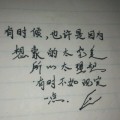 有时候，也许是因为
想象的太完美
所以太理想
有时不如现实
一点。